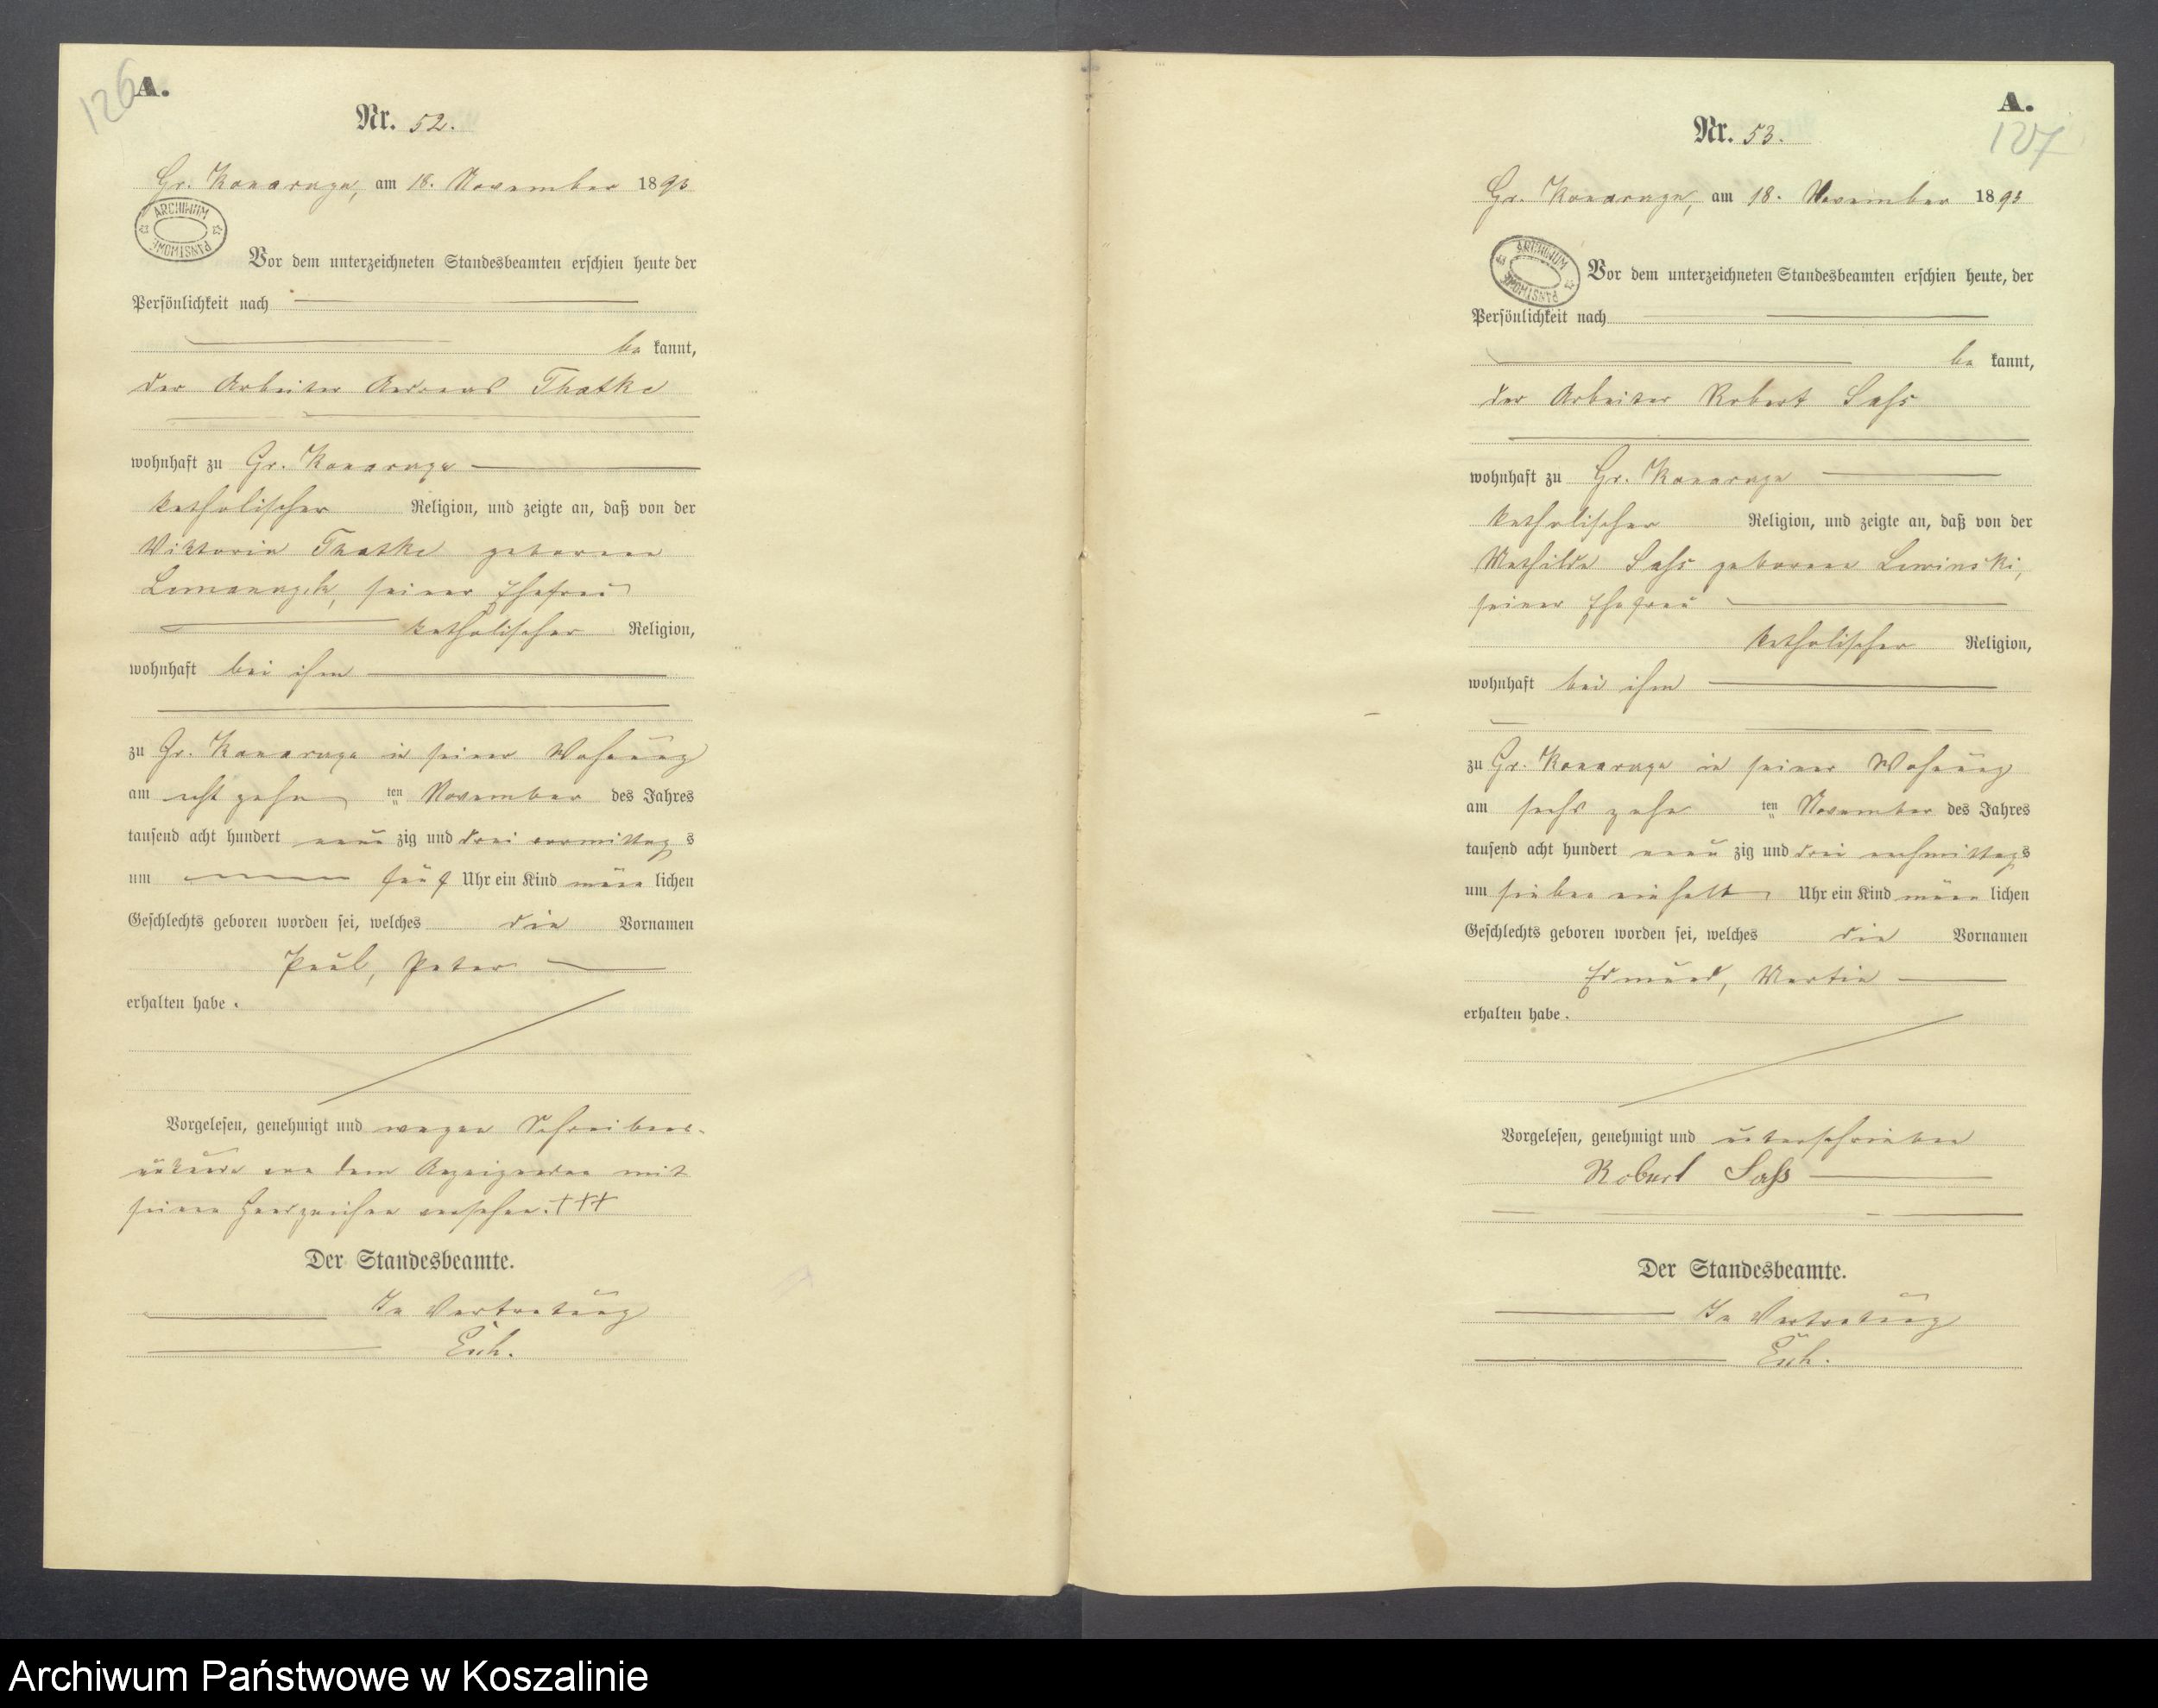 126
A.
Nr. 52.
Gr. Konarczyn, am 18. November 1893
ARCHIWUM PAŃSTWOWE
Vor dem unterzeichneten Standesbeamten erschien heute der
Persönlichkeit nach
be kannt,
der Arbeiter Andreas Thatke
wohnhaft zu Gr. Konarczyn
katholischer Religion, und zeigte an, daß von der
Viktoria Thatke geborene
seiner Ehefrau
katholischer Religion,
wohnhaft bei ihm
zu Gr. Konarczyn in seiner Wohnung
am acht zehn ten November des Jahres
tausend acht hundert neun zig und drei vormittag s
um fünf Uhr ein Kind männ lichen
Geschlechts geboren worden sei, welches die Vornamen
Paul, Peter
erhalten habe.
Vorgelesen, genehmigt und wegen Schreibens-
unkunde von dem Anzeigenden mit
seinen Handzeichen versehen. +++
Der Standesbeamte.
In Vertretung
A.
127
Nr. 53.
Gr. Konarczyn, am 18. November 1893
ARCHIWUM PAŃSTWOWE
Vor dem unterzeichneten Standesbeamten erschien heute, der
Persönlichkeit nach
be kannt,
der Arbeiter Robert Saß
wohnhaft zu Gr. Konarczyn
katholischer Religion, und zeigte an, daß von der
Mathilde Saß geborene Lewinski,
seiner Ehefrau
katholischer Religion,
wohnhaft bei ihm
zu Gr. Konarczyn in seiner Wohnung
am sechs zehn ten November des Jahres
tausend acht hundert neun zig und drei nachmittags
um sieben einhalb Uhr ein Kind männ lichen
Geschlechts geboren worden sei, welches die Vornamen
Edmund, Martin
erhalten habe.
Vorgelesen, genehmigt und unterschrieben
Robert Saß
Der Standesbeamte.
In Vertretung
Archiwum Państwowe w Koszalinie